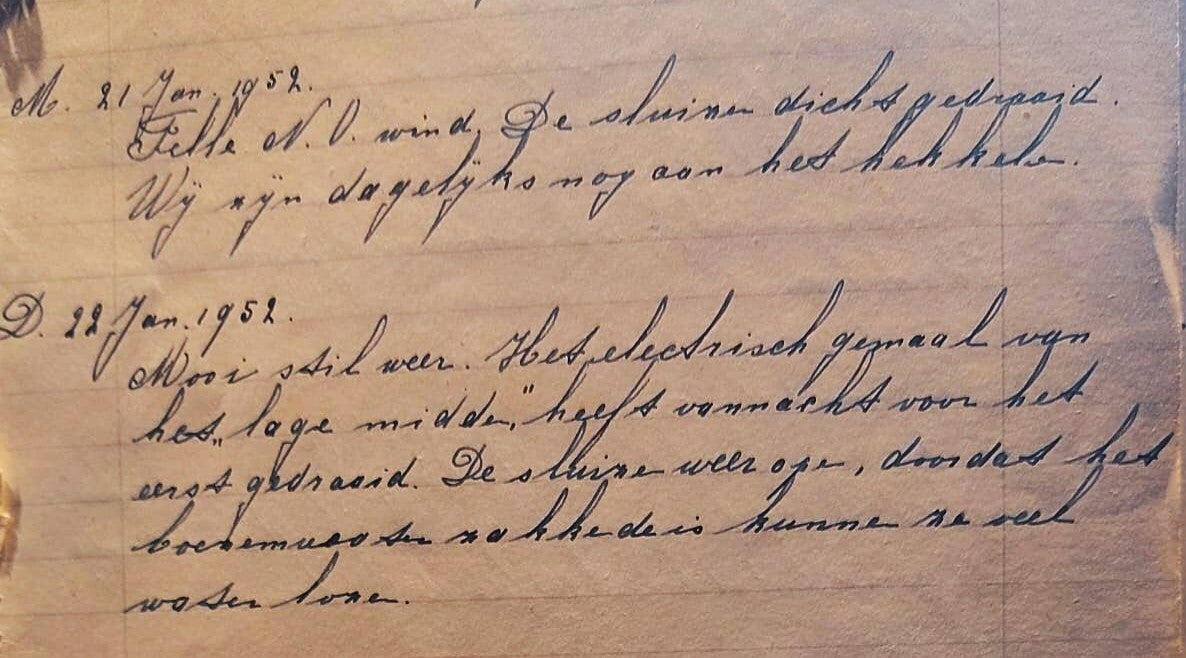 M. 21 Jan. 1952.
Felle N.O. wind, De sluizen dicht gedraaid.
Wij zijn dagelijks nog aan het hekkelen.
D. 22 Jan. 1952.
Mooi stil weer. Het electrisch gemaal van
het „lage midden" heeft vannacht voor het
eerst gedraaid. De sluizen weer open, doordat het
boezemwater zakkende is kunnen ze veel
water lozen.